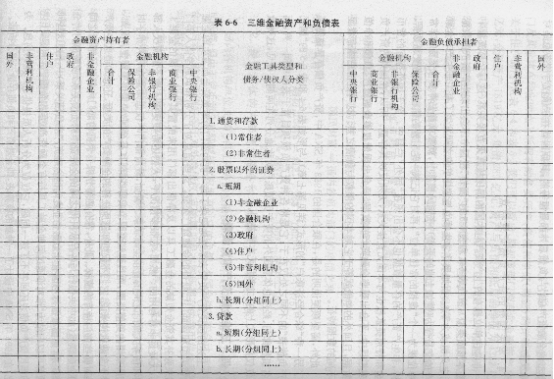 表 6-6 三维金融资产和负债表
金融资产持有者
金融工具类型和
债务/债权人分类
金融负债承担者
国外
非营利机构
住户
政府
非金融企业
金融机构
合计
保险公司
非银行机构
商业银行
中央银行
金融机构
中央银行
商业银行
非银行机构
保险公司
合计
非金融企业
政府
住户
非营利机构
国外
1.通货和存款
(1)常住者
(2)非常住者
2.股票以外的证券
a.短期
(1)非金融企业
(2)金融机构
(3)政府
(4)住户
(5)非营利机构
(6)国外
b.长期(分组同上)
3.贷款
a.短期(分组同上)
b.长期(分组同上)
……